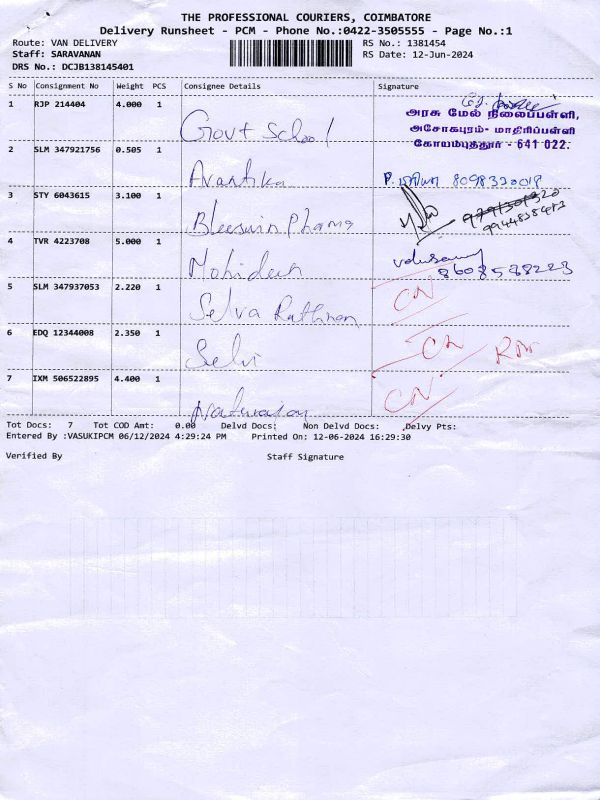 THE PROFESSIONAL COURIERS, COIMBATORE
Delivery Runsheet - PCM - Phone No.:0422-3505555 - Page No.:1
Route: VAN DELIVERY RS No.: 1381454
Staff: SARAVANAN RS Date: 12-Jun-2024
DRS No.: DCJB138145401
S No Consignment No Weight PCS Consignee Details Signature
1 RJP 214404 4.000 1 Govt School
அரசு மேல் நிலைப்பள்ளி,
அசோகபுரம்- மாதிரிப்பள்ளி
கோயம்புத்தூர் - 641 022.
2 SLM 347921756 0.505 1 Avantika P. 8098320018
3 STY 6043615 3.100 1 Bleeswin Pharma
4 TVR 4223708 5.000 1 Mohideen 8608588223
5 SLM 347937053 2.220 1 Selva Rathinam CN
6 EDQ 12344008 2.350 1 Selvi CN
7 IXM 506522895 4.400 1 CN
Tot Docs: 7 Tot COD Amt: 0.00 Delvd Docs: Non Delvd Docs: Delvy Pts:
Entered By :VASUKIPCM 06/12/2024 4:29:24 PM Printed On: 12-06-2024 16:29:30
Verified By Staff Signature